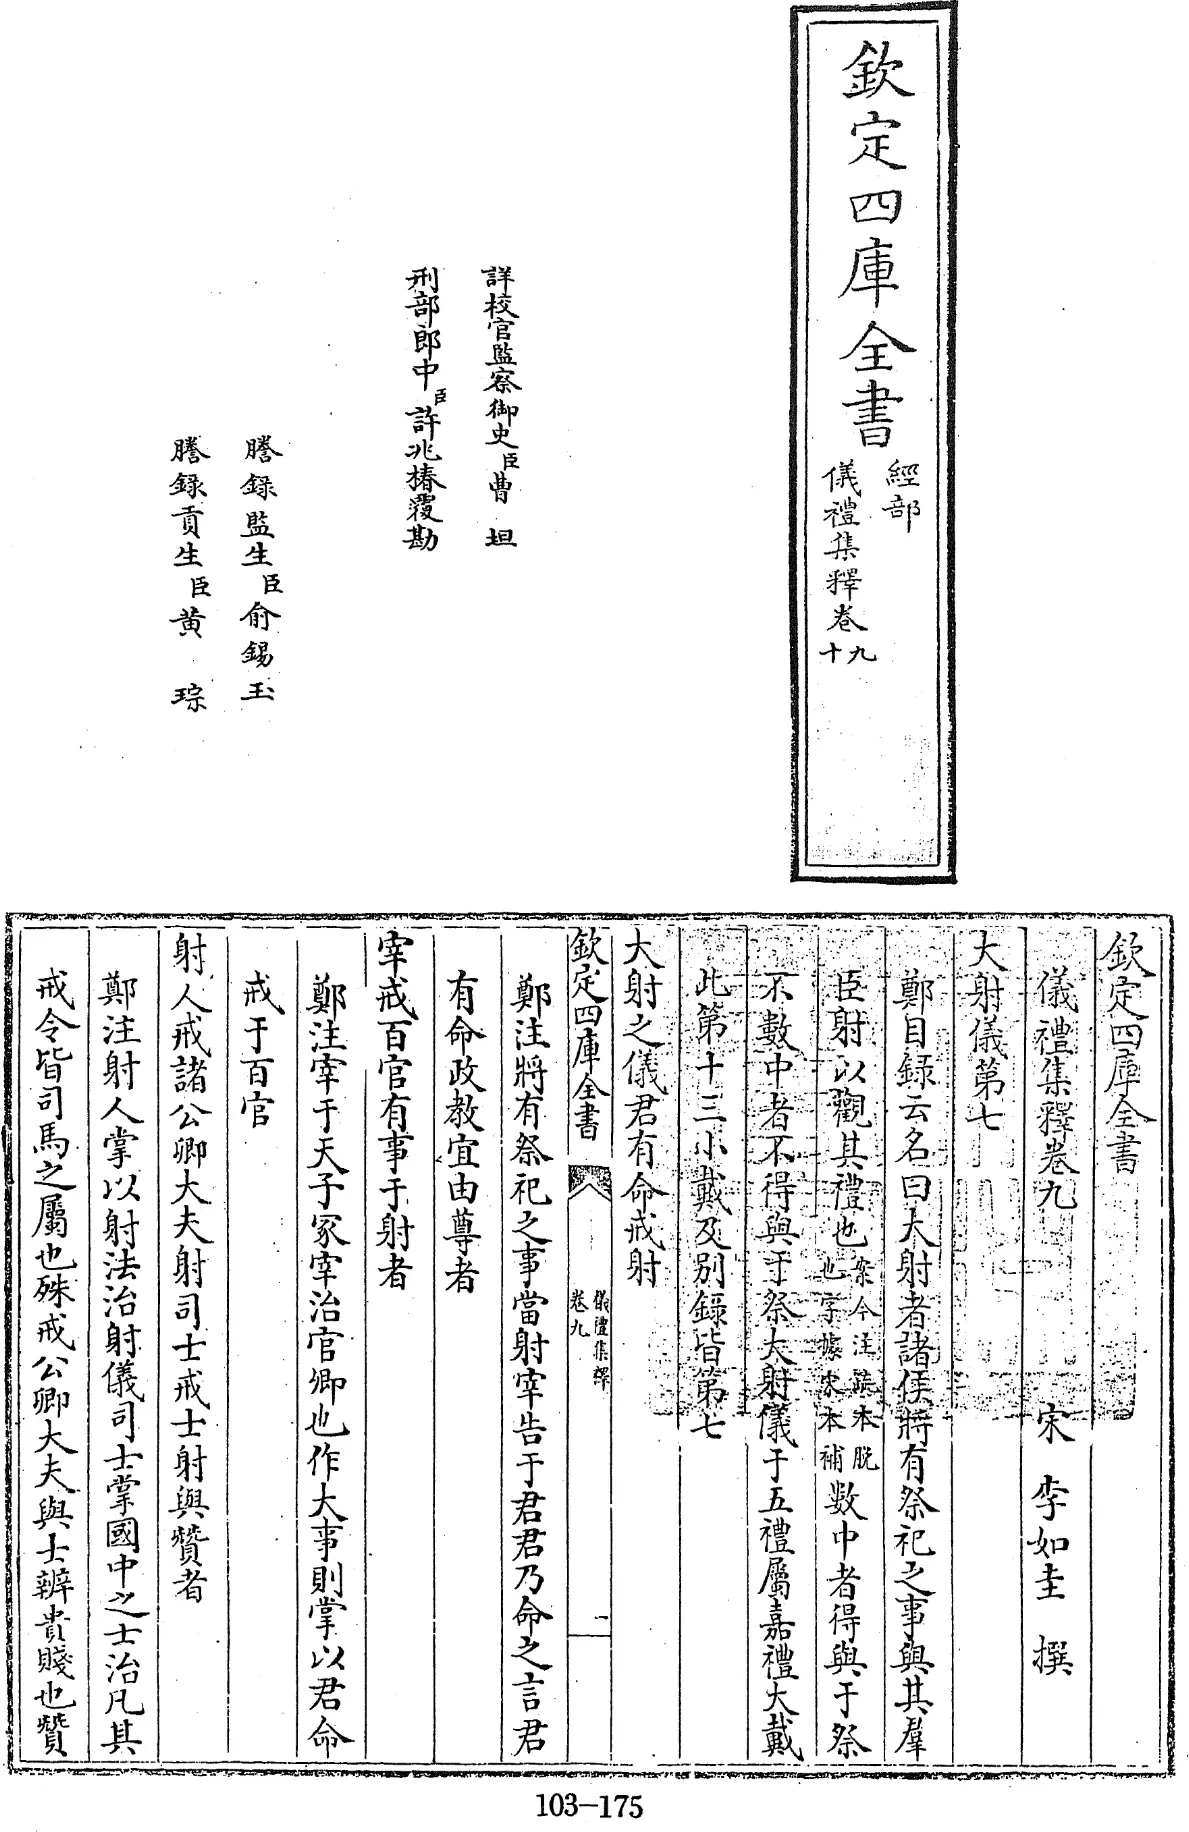 欽定四庫全書
經部
儀禮集釋卷九
十
詳校官監察御史臣曹坦
刑部郎中臣許兆椿覆勘
謄錄監生臣俞錫玉
謄錄貢生臣黄琮
欽定四庫全書
儀禮集釋卷九
宋 李如圭 撰
大射儀第七
鄭目録云名曰大射者諸侯將有祭祀之事與其羣
臣射以觀其禮也案今注疏本脫也字據宋本補數中者得與于祭
不數中者不得與于祭大射儀于五禮屬嘉禮大戴
此第十三小戴及別録皆第七
大射之儀君有命戒射
欽定四庫全書
儀禮集釋
卷九
一
鄭注將有祭祀之事當射宰告于君君乃命之言君
有命政教宜由尊者
宰戒百官有事于射者
鄭注宰于天子冢宰治官卿也作大事則掌以君命
戒于百官
射人戒諸公卿大夫射司士戒士射與贊者
鄭注射人掌以射法治射儀司士掌國中之士治凡其
戒令皆司馬之屬也殊戒公卿大夫與士辨貴賤也贊
103-175